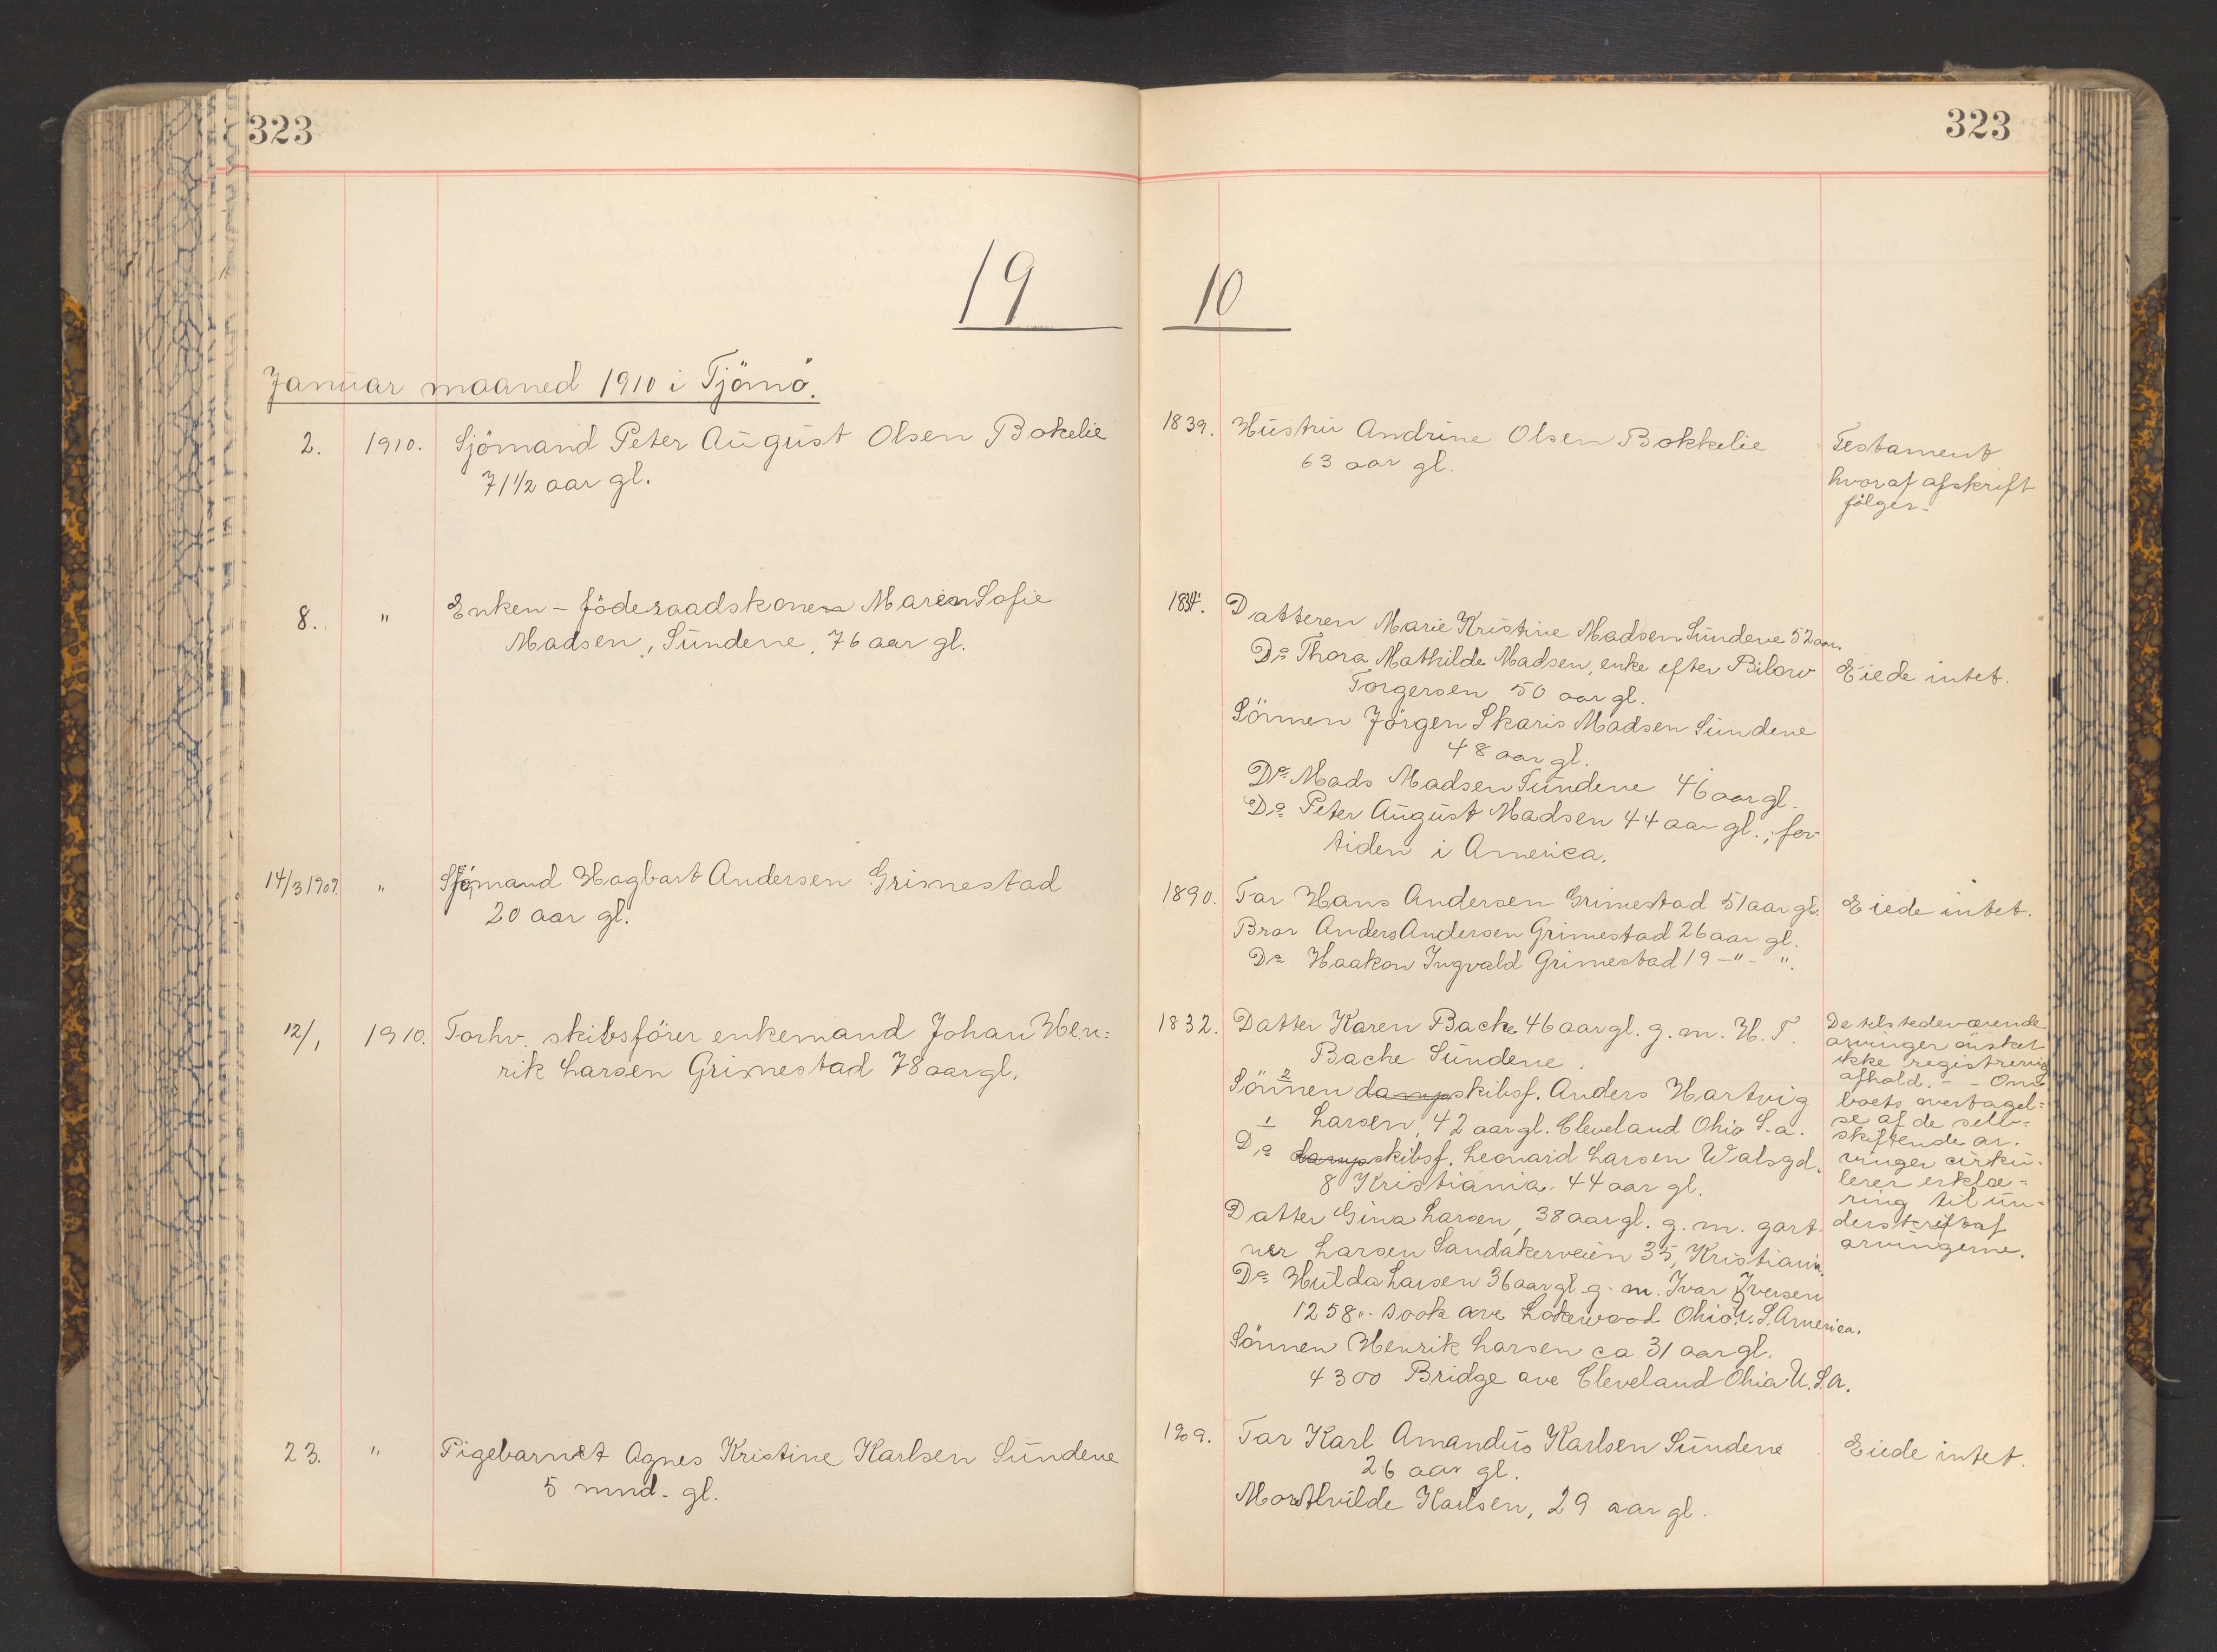 323
323
19
10
Januar maaned 1910 i Tjömö.
2. 1910. Sjömand Peter August Olsen Bokelie
71½ aar gl.
1839. Hustru Andrine Olsen Bokkelie
63 aar gl.
Testament
hvoraf afskrift
følger.
8. " Enken - föderaadskonen Maren Sofie
Madsen, Sundene, 76 aar gl.
1834. Datteren Marie Kristine Madsen Sundene 52 aar.
Do Thora Mathilde Madsen, enke efter Bilow
Torgersen 50 aar gl.
Sönnen Jörgen Skaris Madsen Sundene
48 aar gl.
Do Mads Madsen Sundene 46 aar gl.
Do Peter August Madsen 44 aar gl., for
tiden i America.
Eiede intet.
14/3 1909. " Sjömand Hagbart Andersen Grimestad
20 aar gl.
1890. Far Hans Andersen Grimestad 51 aar gl.
Bror Anders Andersen Grimestad 26 aar gl.
Do Haakon Ingvald Grimestad 19 -"- ".
Eiede intet.
12/1 1910. Forhv. skibsförer enkemand Johan Hen:
rik Larsen Grimestad 78 aar gl.
1832. Datter Karen Bache 46 aar gl. g. m. H. F.
Bache Sundene.
2
Sönnen dampskibsf. Anders Hartvig
Larsen, 42 aar gl. Cleveland Ohio S.a.
1
Do dampskibsf. Leonard Larsen Walsgd.
8 Kristiania 44 aar gl.
Datter Gina Larsen, 38 aar gl. g. m. gart
ner Larsen Sandakerveien 35, Kristiania.
Do Hulda Larsen 36 aar gl. g. m. Ivar Iversen
1258 ave Lakewood Ohio U. S. America.
Sönnen Henrik Larsen ca 31 aar gl.
4300 Bridge ave Cleveland Ohio U. S. A.
De tilstedeværende
arvinger önsket
ikke registrering
afhold. - - Om
boets overtagel:
se af de selv:
skiftende ar.
vinger cirku-
lerer erklæ-
ring til un-
derskrift af
arvingerne.
23. " Pigebarnet Agnes Kristine Karlsen Sundene
5 mnd. gl.
1909. Far Karl Amandus Karlsen Sundene
26 aar gl.
Mor Alvilde Karlsen, 29 aar gl.
Eiede intet.